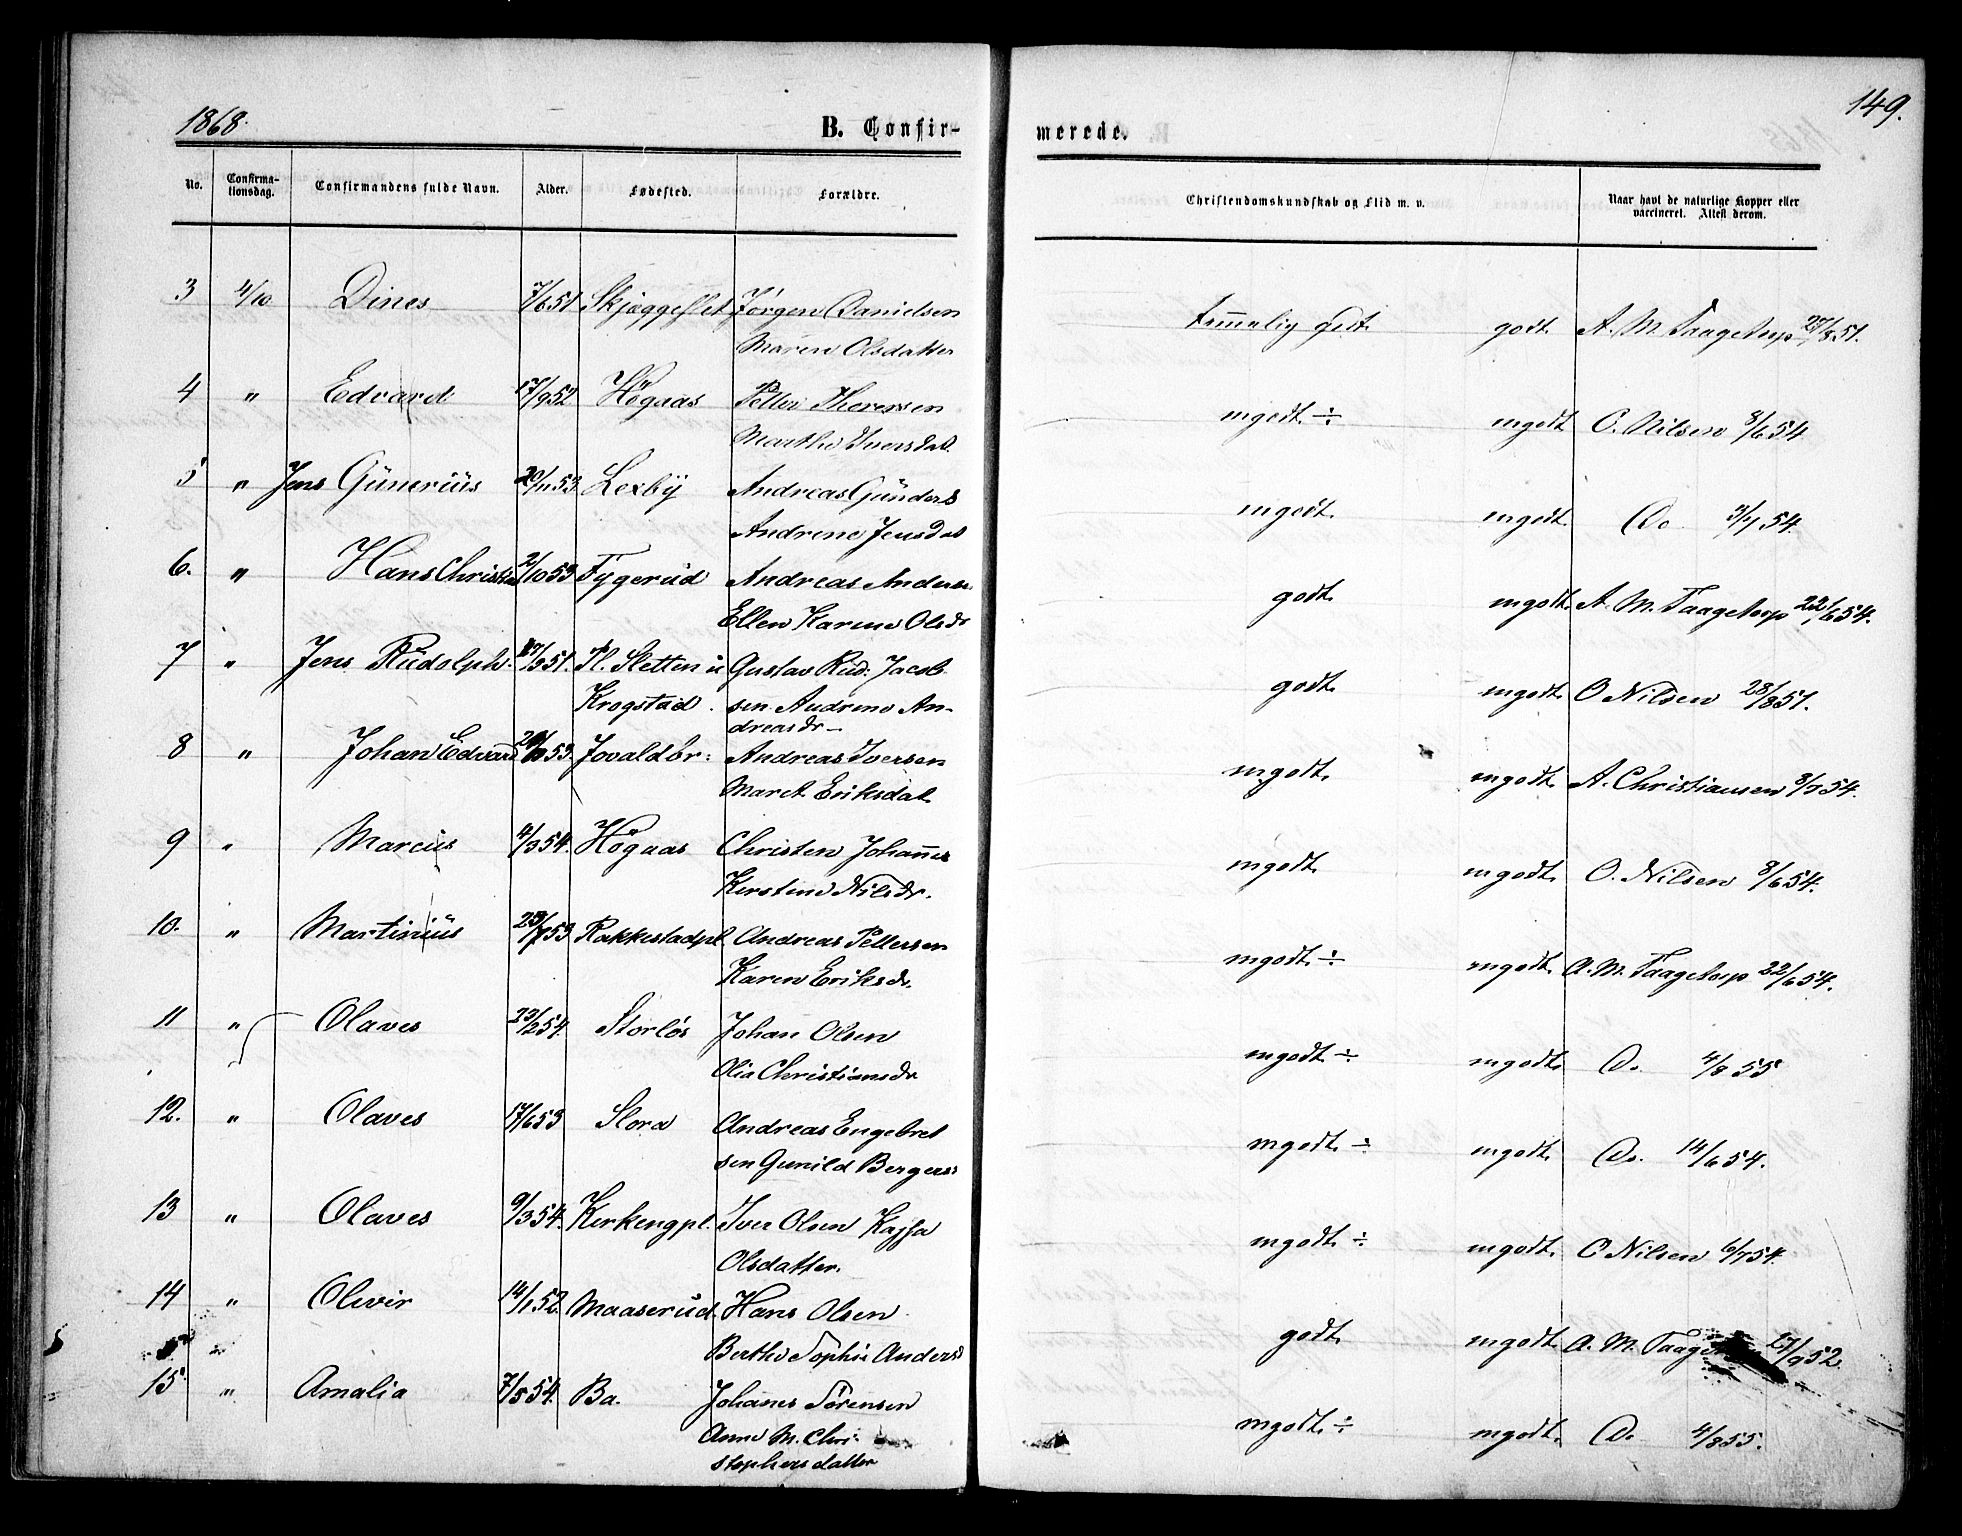 1868.
B. Confir-
merede.
149.
No.
Confirma-
tionsdag.
Confirmandens fulde Navn.
Alder.
Fødested.
Forældre.
Christendomskundskab og Flid m. v.
Naar havt de naturlige Kopper eller
vaccineret. Attest derom.
3 4/10 Dines 7/6 51 Skjæggeflet Jørgen Danielsen temmelig godt godt A. M. Taagetorp 27/8 51.
Maren Olsdatter
4 " Edvard 17/9 52 Högaas Petter Thoresen mgodt ÷ mgodt O. Nilsen 8/6 54
Marthe Iversdat.
5 " Jens Günerius 20/11 53. Lexbÿ Andreas Günders mgodt mgodt Do 3/7 54.
Andrene Jensdat
6. " Hans Christian 2/10 53 Tygerüd Andreas Anders godt mgodt A. M. Taagetorp 22/6 54.
Ellen Karine Olsdr
7 " Jens Rüdolph. 17/3 51. Pl. Sletten u Gustav Rüd: Jacob godt mgodt O Nilsen 28/8 51.
Krogstad. sen Andrene An-
dreasdr
8 " Johan Edvard 53. Jovaldbr: Andreas Iversen mgodt mgodt A. Christiansen 3/7 54.
Maret Eriksdat
9 " Marcus 4/3 54. Högaas Christen Johannes mgodt mgodt O. Nilsen 8/6 54.
Kerstine Nilsdr.
10. " Martinius 23/7 53 Rakkestadpl. Andreas Pettersen mgodt ÷ mgodt A. M. Taagetorp 22/6 54.
Karen Eriksdr.
11 " Olaves 23/2 54. Storlös Johan Olsen mgodt ÷ mgodt Do 4/8 55
Olia Christiansdr
12. " Olaves 17/6 53 Slora Andreas Engebret mgodt ÷ mgodt Do. 14/6 54.
sen Gunild Bergers:
13 " Olaves 9/3 54. Kirkengpl. Iver Olsen Kajsa mgodt ÷ mgodt O Nilsen 6/7 54.
Olsdatter.
14 " Olivir 14/1 52. Maaserud Hans Olsen godt mgodt A. M. 27/9 52.
Berthe Sophie Andersd
15 " Amalia 7/5 54. Ba. Johanes Sørensen mgodt ÷ mgodt Do 4/8 55.
Anne M. Chri-
stophersdatter